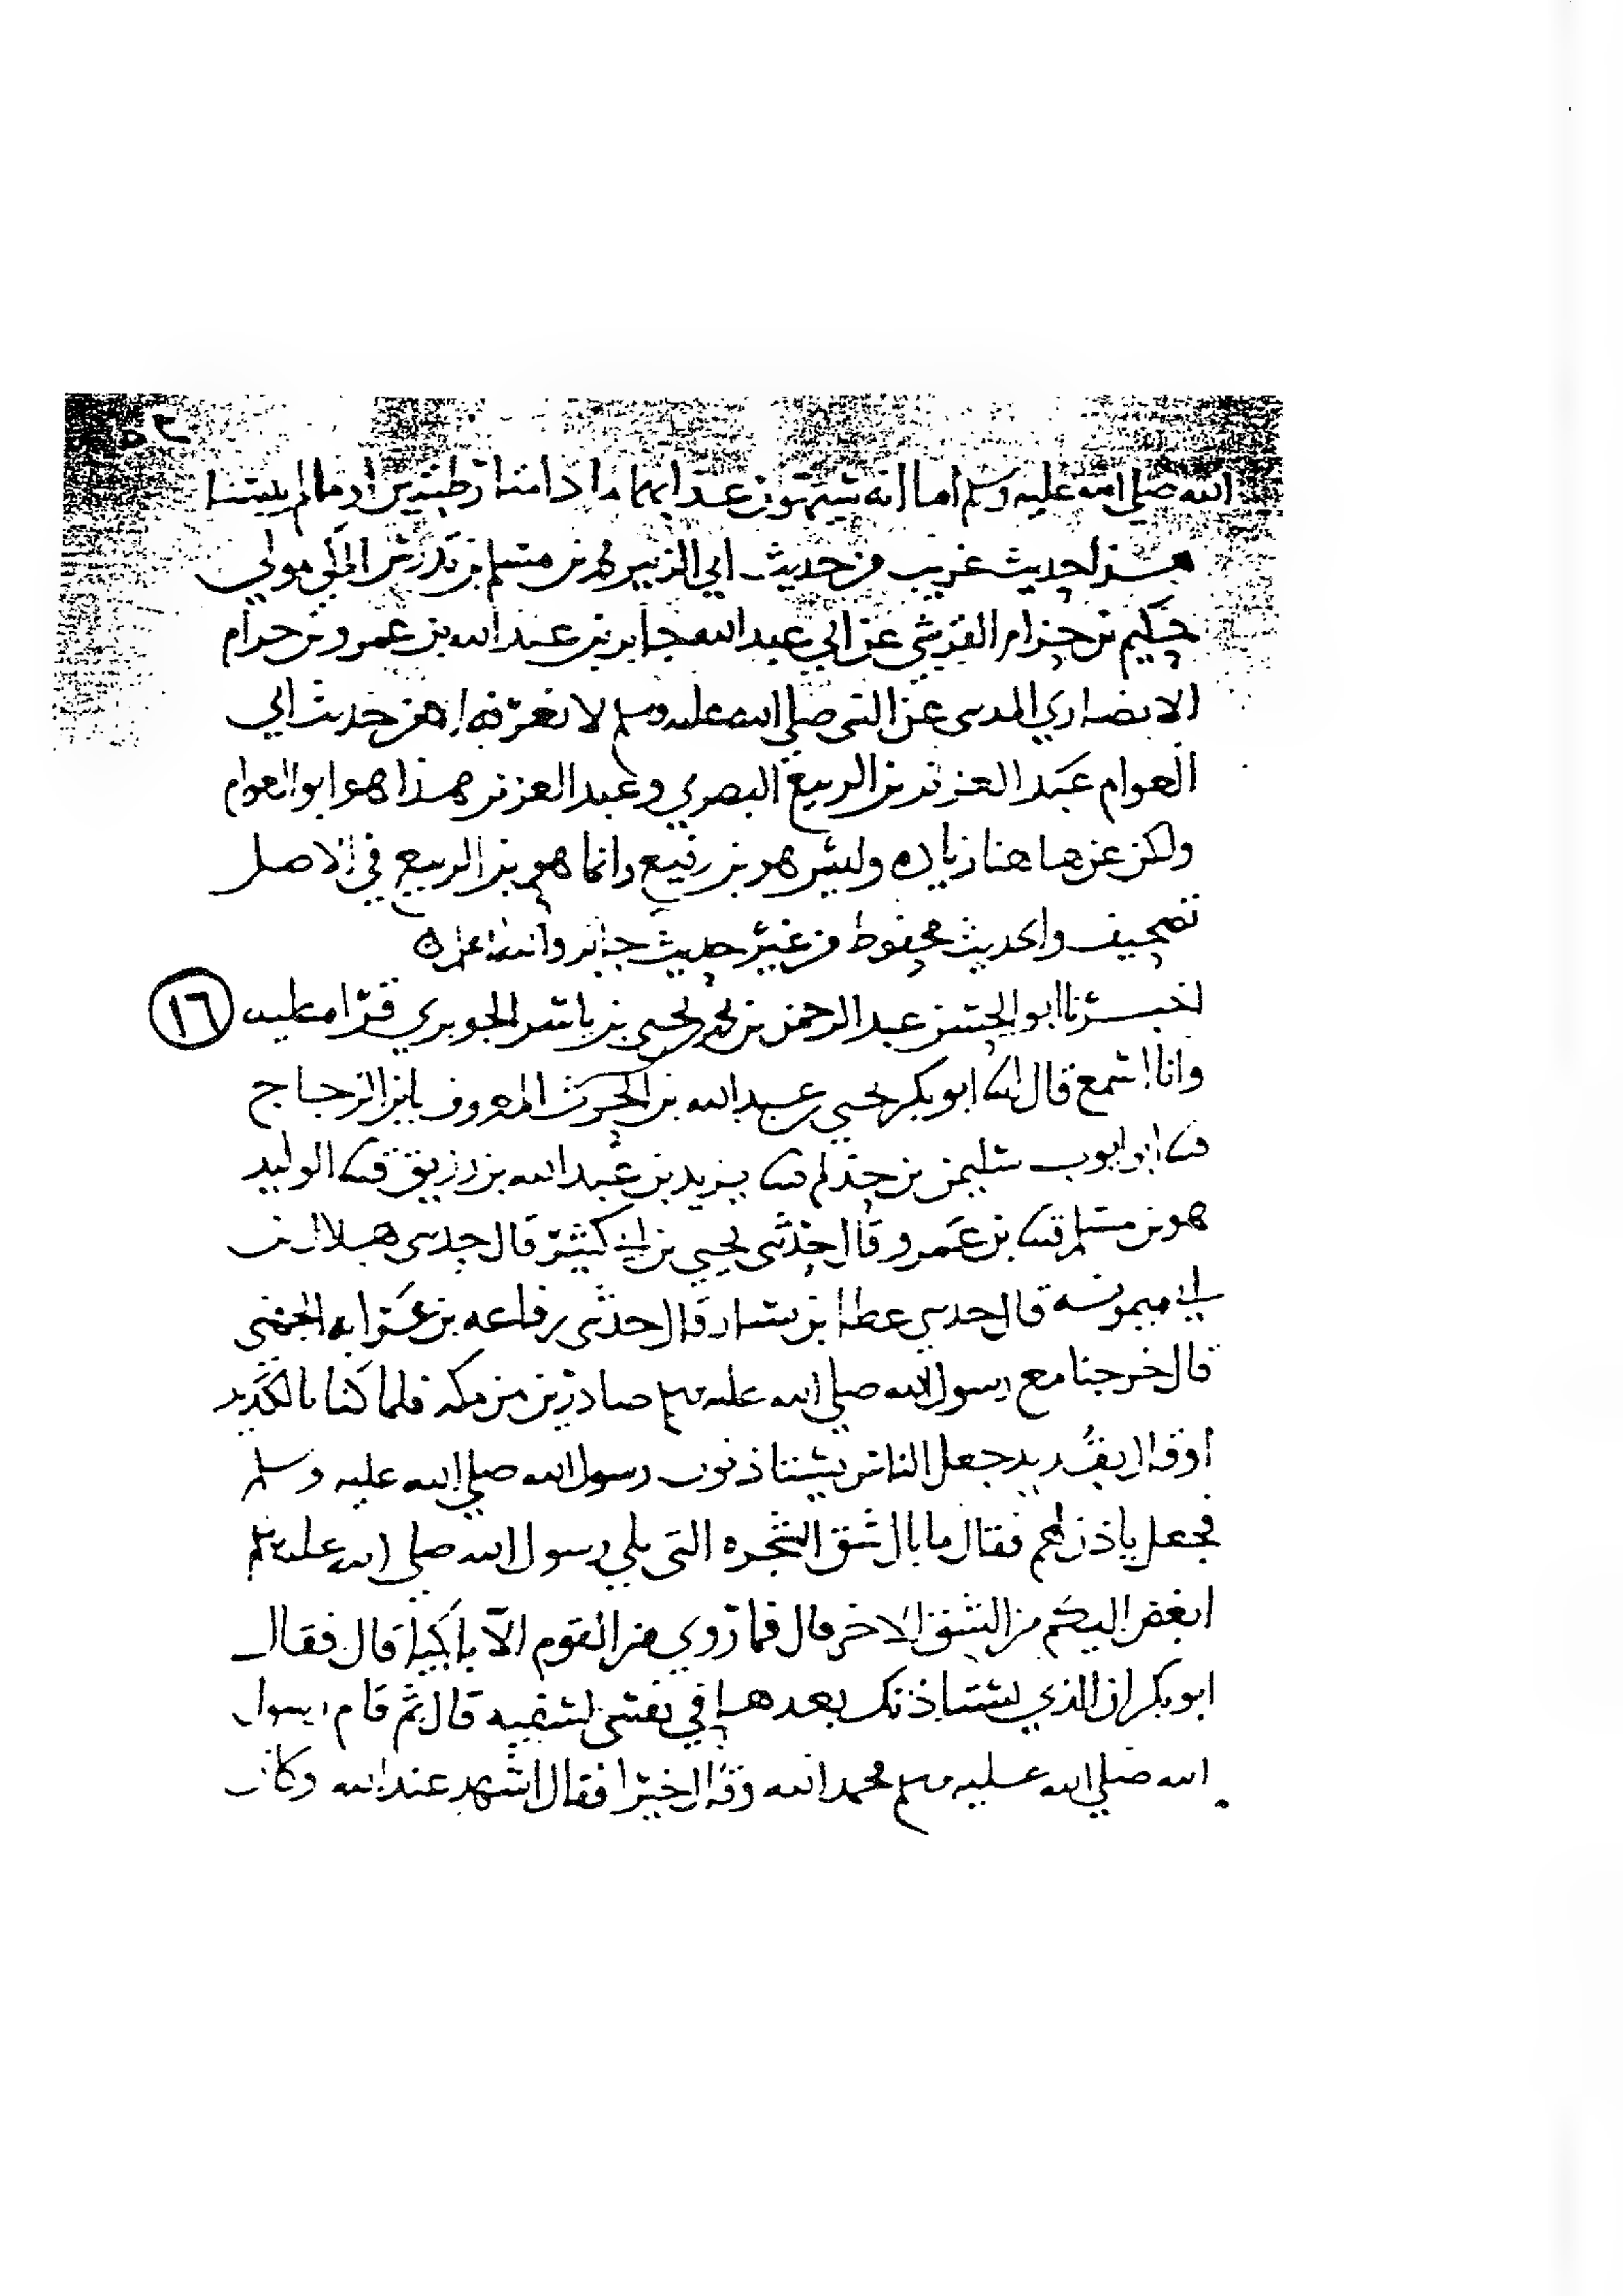 الله صلي الله عليه وسلم اما انه سيهون عذابهما ما دامتا رطبتين او ما لم ييبسا
هذا حديث غريب من حديث ابي الزبير محمد بن مسلم بن تدرس المكي مولي
حكيم بن حزام القرشي عن ابي عبد الله جابر بن عبد الله بن عمرو بن حرام
الانصاري المدني عن النبي صلي الله عليه وسلم لا نعرفه الا من حديث ابي
العوام عبد العزيز بن الربيع البصري وعبد العزيز هذا هو ابو العوام
ولكن عن هاهنا زياده وليس هو بن رفيع وانما هو بن الربيع في الاصل
تصحيف والحديث محفوظ من غير حديث جابر والله اعلم
اخبرنا ابو الحسن عبد الرحمن بن محمد بن يحيي بن ياسر الجوبري قراه عليه ١٦
وانا اسمع قال ابو بكر يحيي بن عبد الله بن الحرث المعروف بابن الزجاج
ابو ايوب سليمن بن حذلم يزيد بن عبد الله بن رزيق الوليد
هو بن مسلم بن عمرو قال حدثني يحيي بن ابي كثير قال حدثني هلال بن
ابي ميمونه قال حدثني عطا بن يسار قال حدثني رفاعه بن عرابه الجهني
قال خرجنا مع رسول الله صلي الله عليه وسلم صادرين من مكه فلما كنا بالكديد
او قال بقديد جعل الناس يستاذنون رسول الله صلي الله عليه وسلم
فجعل ياذن لهم فقال ما بال شق الشجره التي يلي رسول الله صلي الله عليه وسلم
ابغض اليكم من الشق الاخر قال فما روي من القوم الا باكيا قال فقال
ابو بكر ان الذي يستاذنك بعدها في نفسي لسفيه قال ثم قام رسول
الله صلي الله عليه وسلم فحمد الله وقال خيرا فقال اشهد عند الله وكان